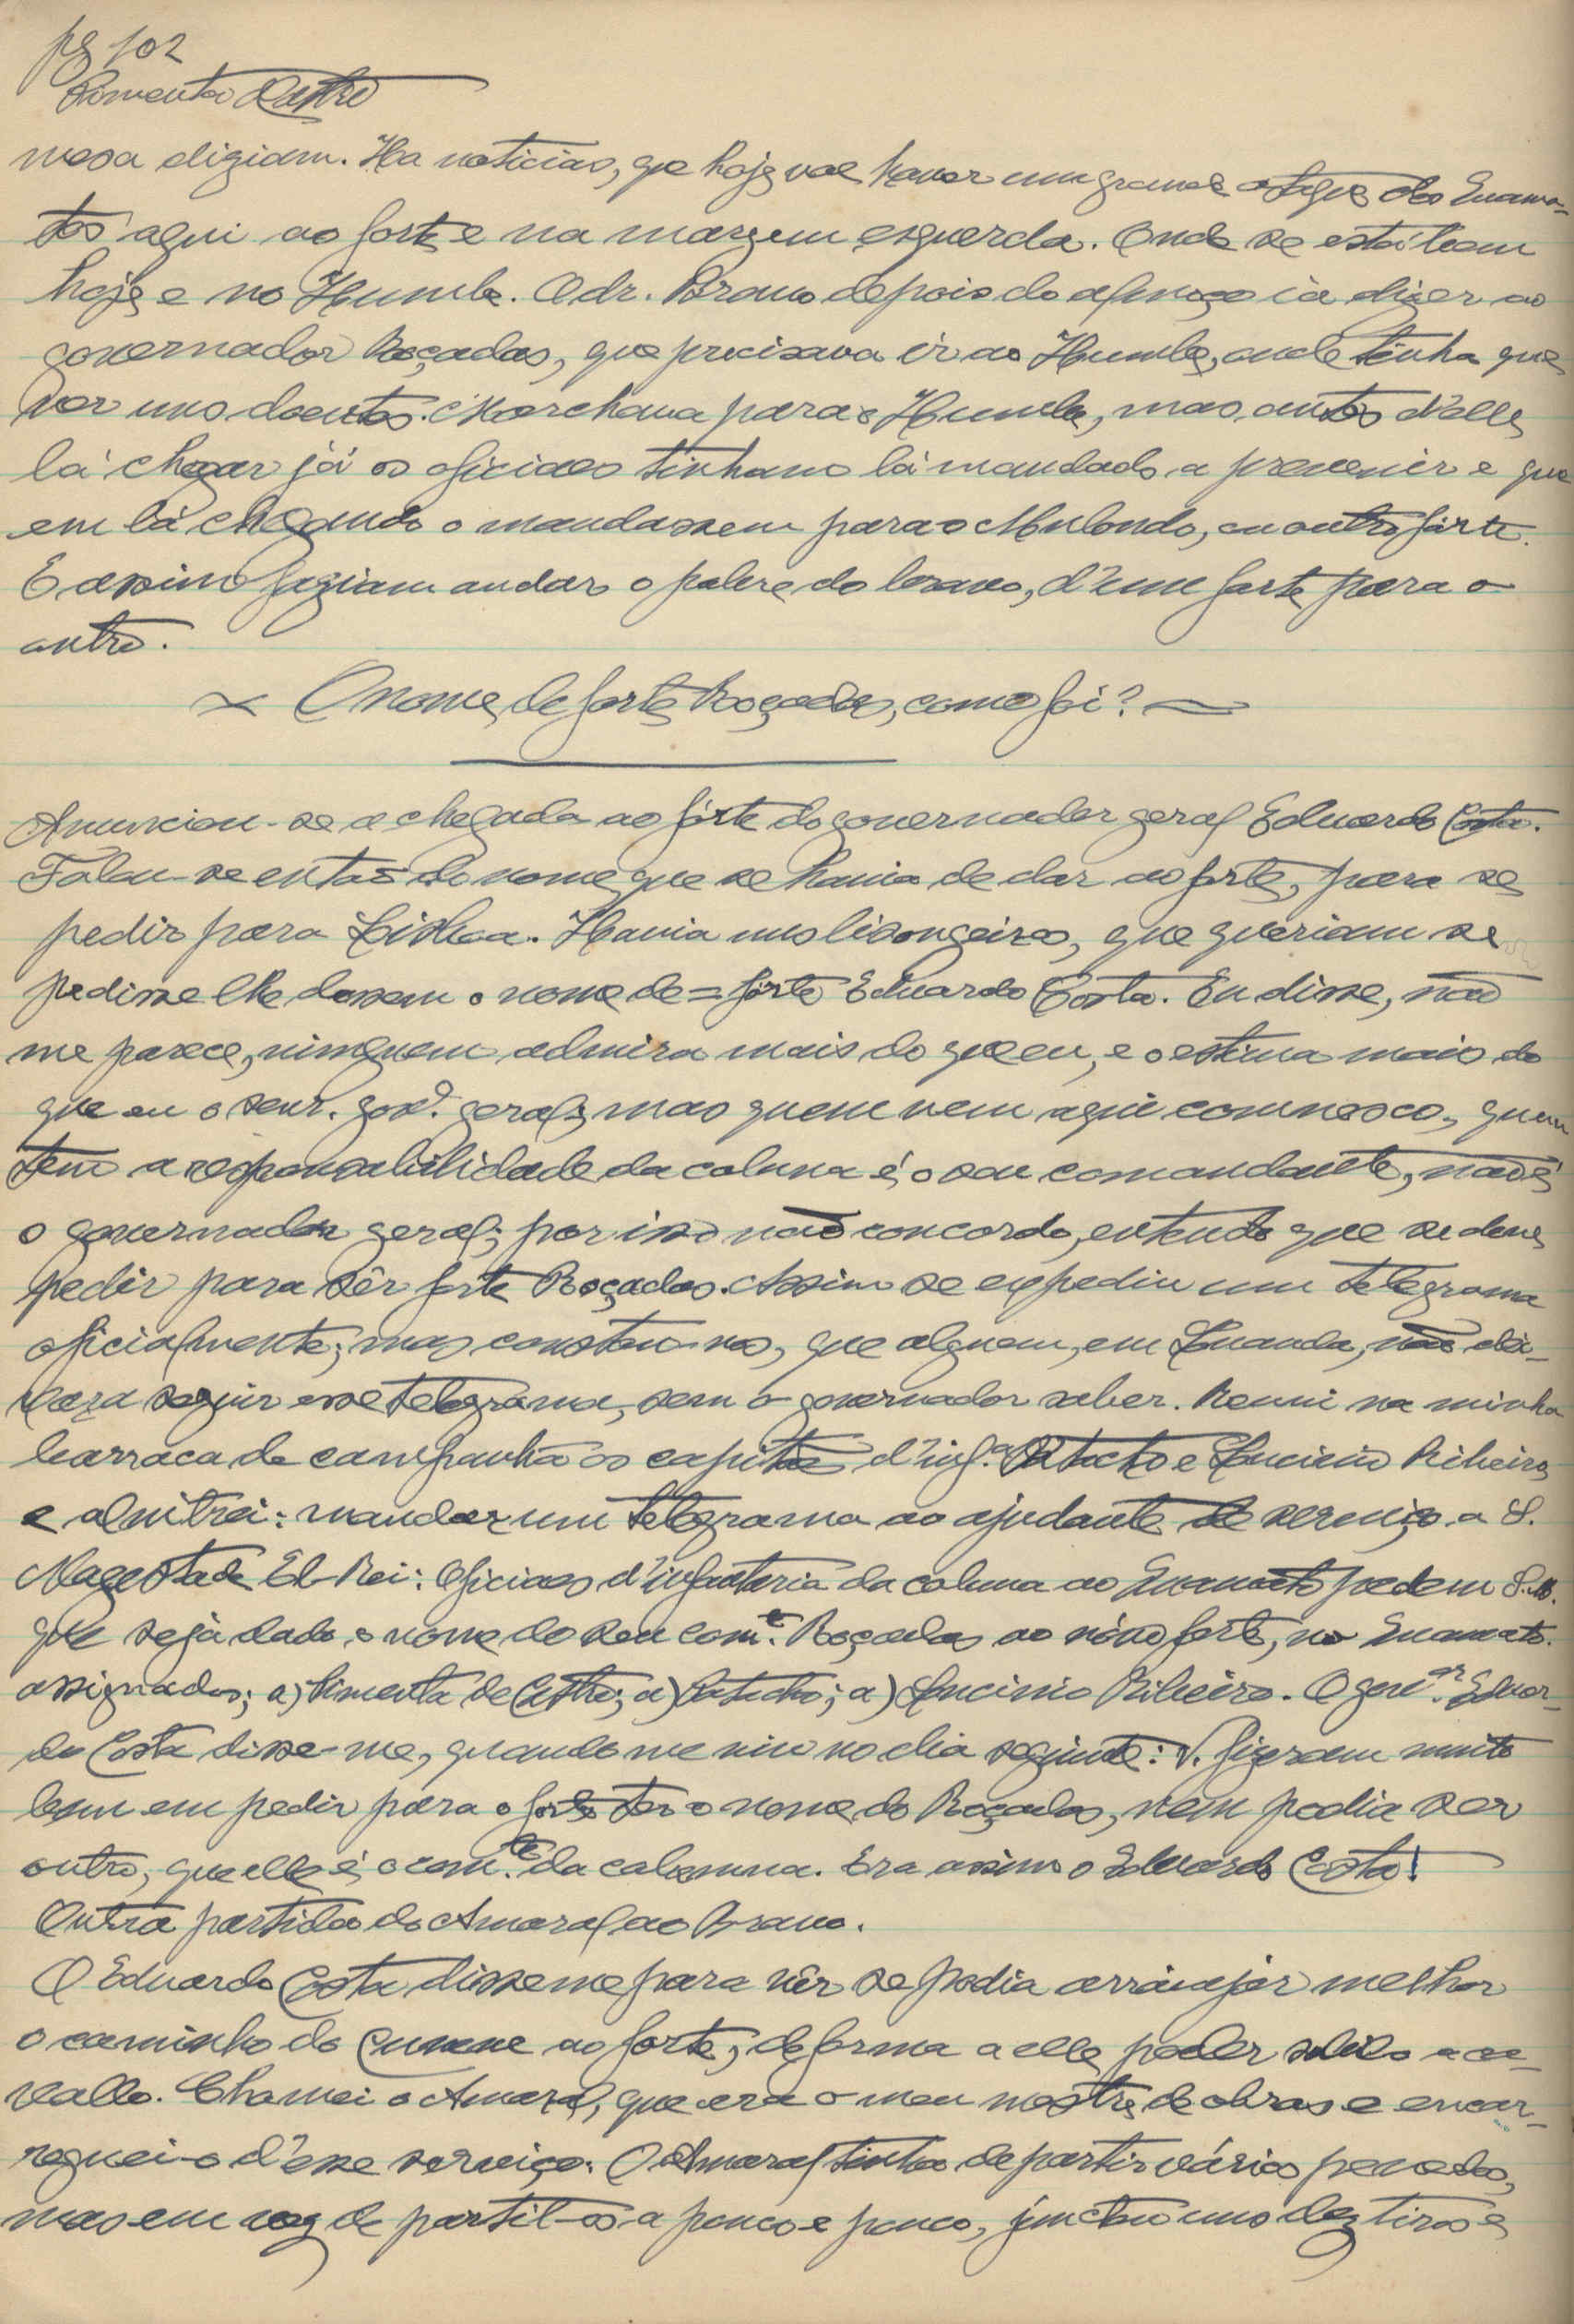 pg 102
Pimenta Castro
mesa diziam. Ha noticias, que hoje vae haver um grande ataque dos Cuama-
tos aqui ao forte e na margem esquerda. Onde se está bem
hoje e no Humbe. O dr. Bravo depois do almoço ia dizer ao
governador Roçadas, que precisava ir ao Humbe, onde tinha que
ver uns doentes. Marchava para o Humbe, mas antes d'elle
lá chegar já os oficiaes tinham lá mandado a prevenir e que
em lá chegando o mandassem para o Mulondo, ou outro forte.
E assim faziam andar o pobre do bravo, d'um forte para o
outro.
O nome de forte Roçadas, como foi?
Anunciou-se a chegada ao fórte do governador geral Eduardo Costa.
Falou-se então do nome que se havia de dar ao forte, para se
pedir para Lisboa. Havia uns lisongeiros, que queriam se
pedisse lhe dessem o nome de = fórte Eduardo Costa. Eu disse, não
me parece, ninguem admira mais do que eu, e o estima mais do
que eu o senr. govº. geral; mas quem vem aqui comnosco, quem
tem a responsabilidade da coluna é o seu comandante, não é
o governador geral; por isso não concordo, entendo que se deve
pedir para sêr forte Roçadas. Assim se expediu um telegrama
oficialmente; mas constou-nos, que alguem, em Luanda, não dei-
xara seguir esse telegrama, sem o governador saber. Reuni na minha
barraca de campanha os capitães d'infª. Patacho e Lucinio Ribeiro
e alvitrei: mandar um telegrama ao ajudante de serviço a S.
Magestade El-Rei: Oficiaes d'infanteria da coluna ao Cuamato pedem S. M.
que seja dado o nome do seu comte. Roçadas ao nóvo forte, no Cuamato.
assignados; a) Pimenta de Castro; a) Patacho; a) Lucinio Ribeiro. O govor. Eduar-
do Costa disse-me, quando me viu no dia seguinte: V. fizeram muito
bem em pedir para o forte ter o nome do Roçadas, nem podia ser
outro, que elle é o comte. da columna. Era assim o Eduardo Costa!
Outra partida do Amaral ao Bravo.
O Eduardo Costa disse me para vêr se podia arranjar melhor
o caminho do Cunene ao forte, de forma a elle poder subil-o a ca-
vallo. Chamei o Amaral, que era o meu mestre de obras e encar-
reguei-o d'esse serviço. O Amaral tinha de partir vários penedos,
mas em vez de partil-os a pouco e pouco, junctou uns dez tiros e